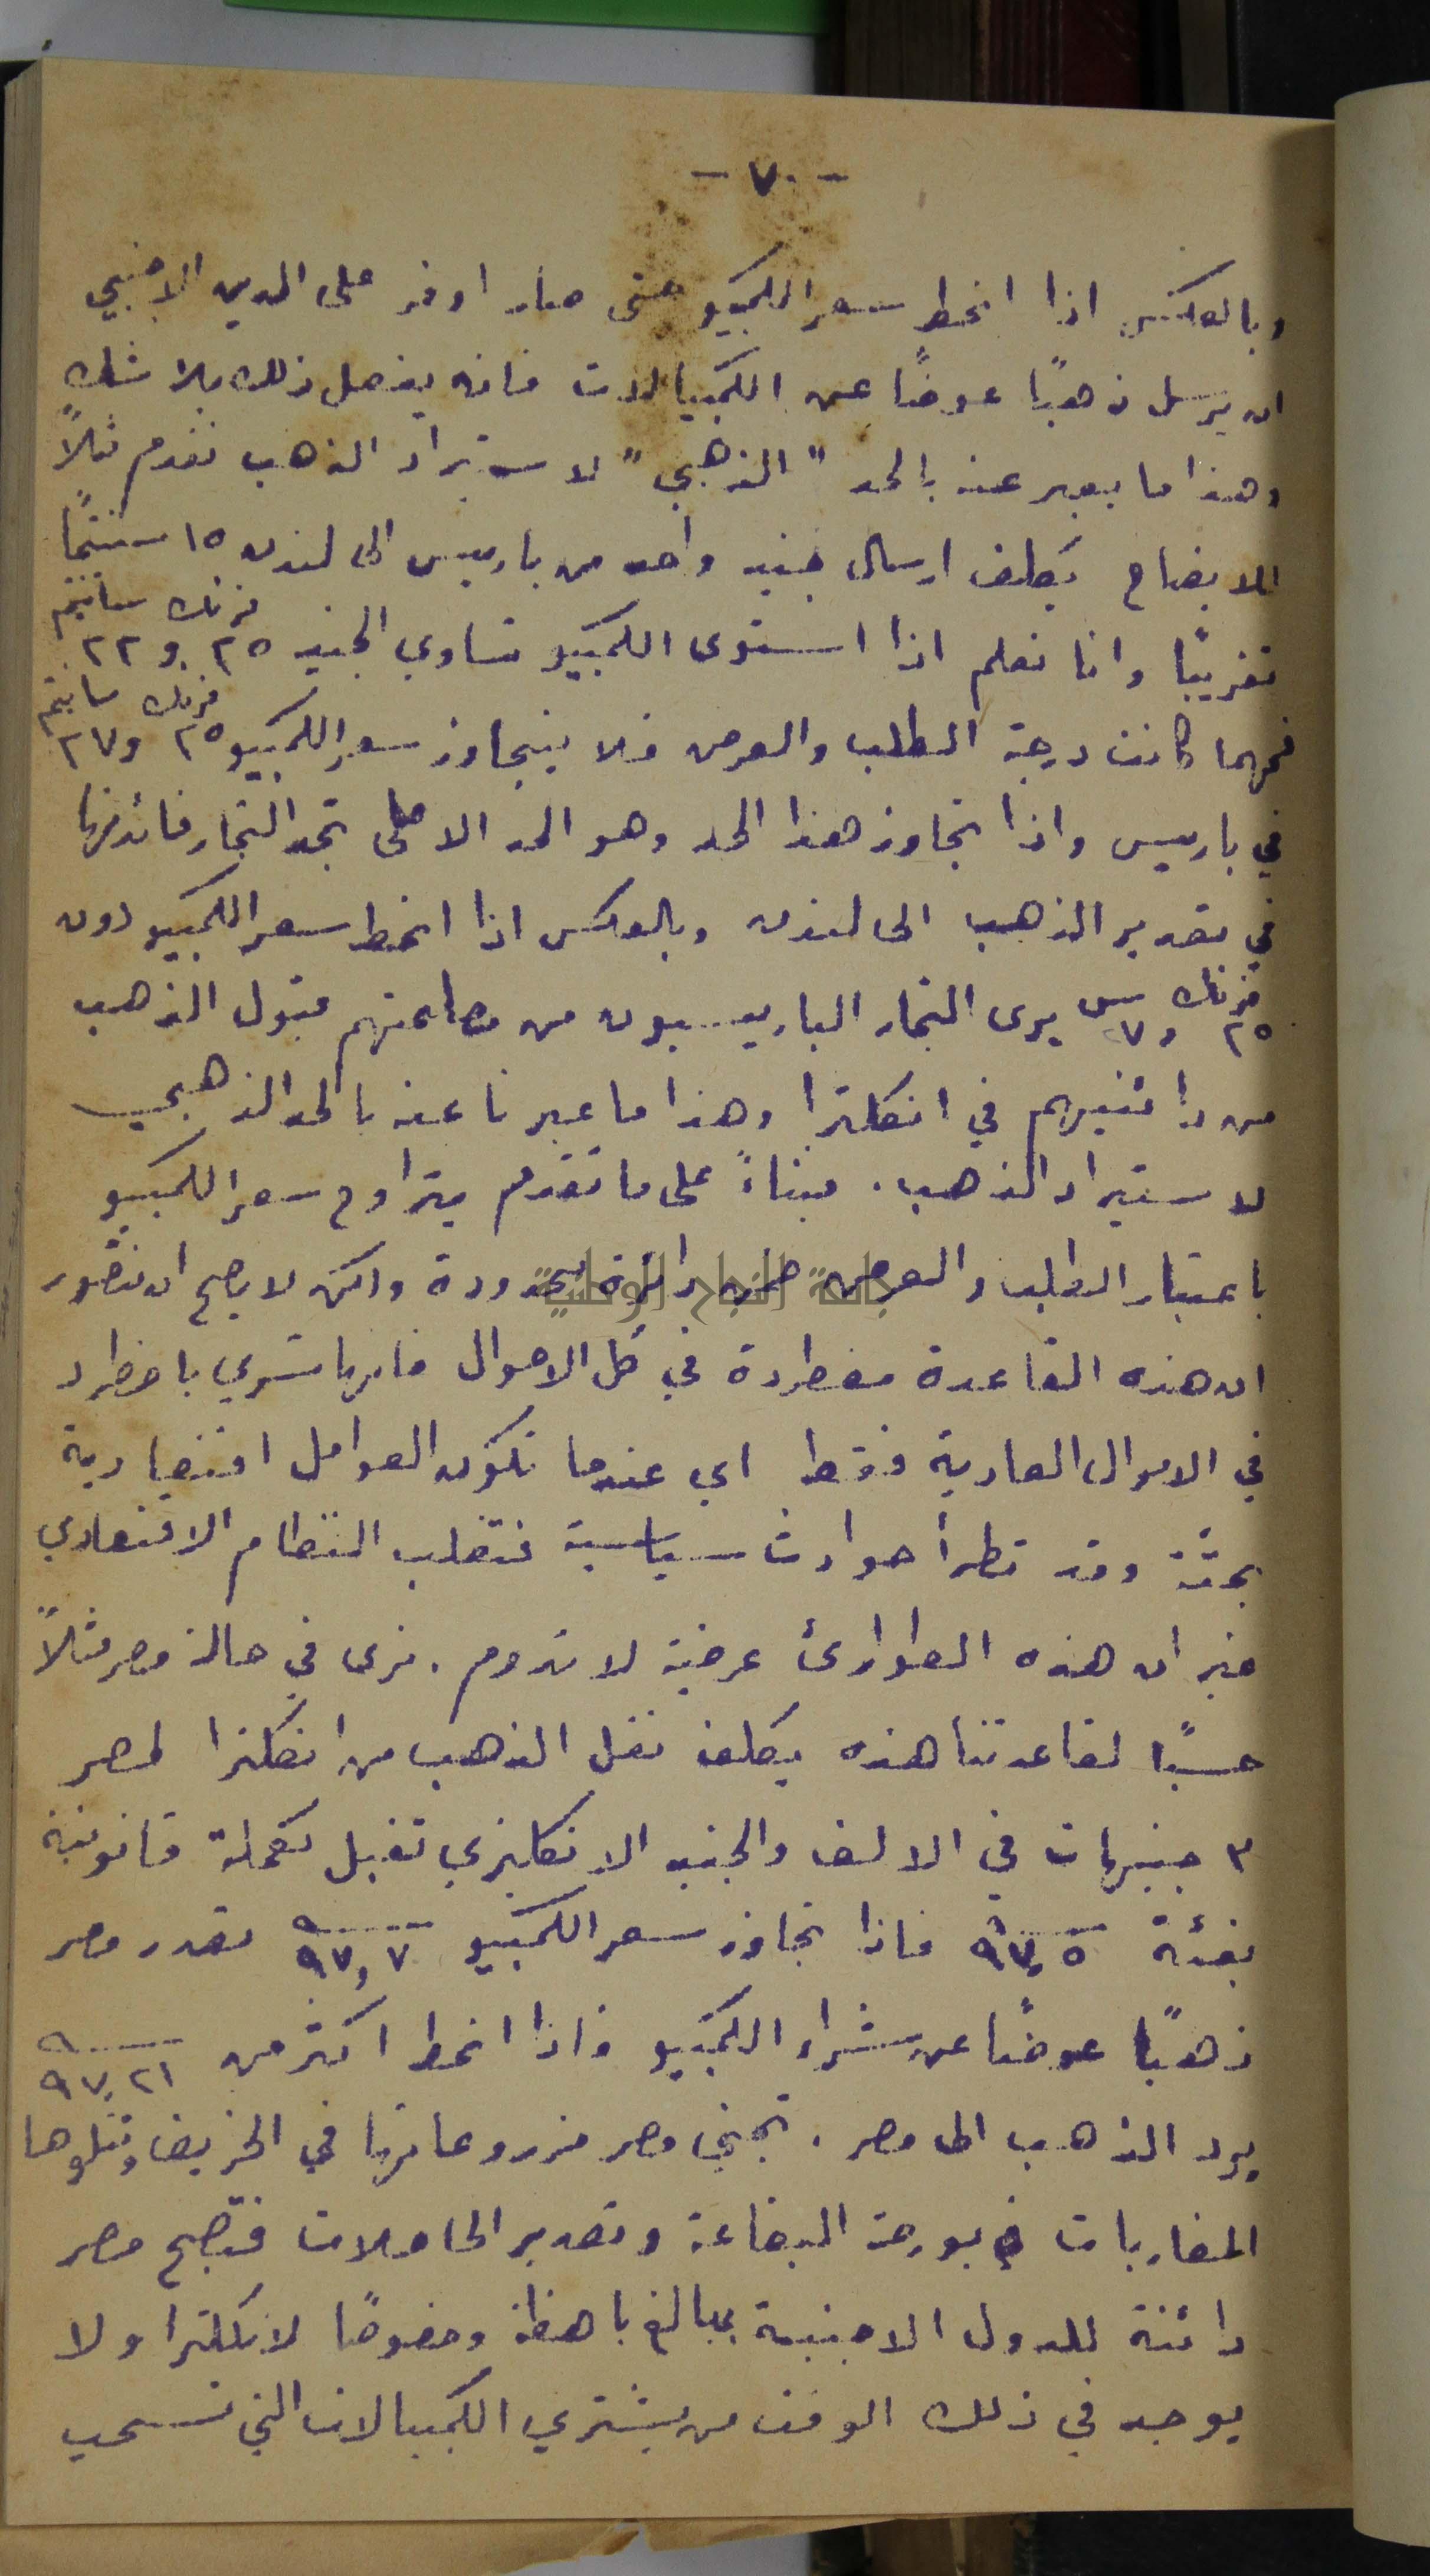 - ٧٠ -
وبالعكس اذا انحط سعر الكمبيو حتى صار اوفر على المدين الاجنبي
ان يرسل ذهبًا عوضًا عن الكمبيالات فانه يفضل ذلك بلا شك
وهذا ما يعبر عنه بالحد "الذهبي" لاستيراد الذهب نقدم مثلاً
للايضاح يكلف ارسال جنيه واحد من باريس الى لندن ١٥ سنتيمًا
تقريبًا وانا نعلم اذا استوى الكمبيو تساوي الجنيه ٢٥ فرنك و٢٢ سانتيم
فمهما كانت درجة الطلب والعرض فلا يتجاوز سعر الكمبيو ٢٥ فرنك و٢٧ سانتيم
في باريس واذا تجاوز هذا الحد وهو الحد الاعلى تجد التجار فائدتها
في تصدير الذهب الى لندن وبالعكس اذا انحط سعر الكمبيو دون
٢٥ فرنك و٧ س يرى التجار الباريسيون من مصلحتهم قبول الذهب
من دائنيهم في انكلترا وهذا ما عبرنا عنه بالحد الذهبي
لاستيراد الذهب. فبناءً على ما تقدم يتراوح سعر الكمبيو
باعتبار الطلب والعرض ضمن دائرة محدودة ولكن لا يصح ان نتصور
ان هذه القاعدة مضطردة في كل الاحوال فانها تسري باضطراد
في الاموال العادية فقط اي عندما تكون العوامل اقتصادية
بحتة وقد تطرأ حوادث سياسية فتقلب النظام الاقتصادي
غير ان هذه الطوارئ عرضية لا تدوم. نرى في حالة مصر مثلاً
حسبًا لقاعدتنا هذه يكلف نقل الذهب من انكلترا لمصر
٣ جنيهات في الالف والجنيه الانكليزي تقبل كعملة قانونية
بفئة ٩٧,٥ فاذا تجاوز سعر الكمبيو ٩٧,٧ تصدر مصر
ذهبًا عوضًا عن شراء الكمبيو واذا انحط اكثر من ٩٧,٢١
يرد الذهب الى مصر. تجني مصر مزروعاتها في الخريف وتتلوها
المضاربات في بورصة البضاعة وتصدير الحاصلات فتصبح مصر
دائنة للدول الاجنبية بمبالغ باهظة وخصوصًا لانكلترا ولا
يوجد في ذلك الوقت من يشتري الكمبيالات التي تسحب
جامعة النجاح الوطنية